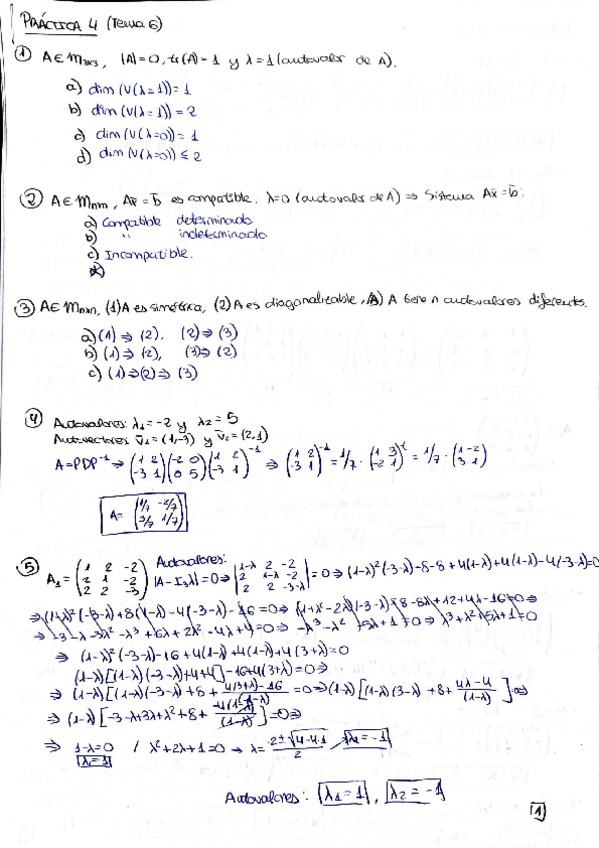 PRÁCTICA 4 (Tema 6)
① A ∈ M3x3, |A|=0, tr(A)=1 y λ=1 (autovalor de A).
a) dim (V(λ=1))=1
b) dim (V(λ=1))=2
c) dim (V(λ=0))=1
d) dim (V(λ=0)) ≤ 2
② A ∈ Mnxn, Ax̄=b̄ es compatible. λ=0 (autovalor de A) ⇒ Sistema Ax̄=b̄:
a) Compatible determinado
b) " indeterminado
c) Incompatible.
③ A ∈ Mnxn, (1) A es simétrica, (2) A es diagonalizable, (3) A tiene n autovalores diferentes.
a) (1) ⇒ (2), (2) ⇒ (3)
b) (1) ⇒ (2), (3) ⇒ (2)
c) (1) ⇒ (2) ⇒ (3)
④ Autovalores: λ1=-2 y λ2=5
Autovectores v̄1=(1,-3) y v̄2=(2,1)
A=PDP⁻¹ → (1 2 / -3 1)(-2 0 / 0 5)(1 2 / -3 1)⁻¹ ⇒ (1 2 / -3 1)⁻¹ = 1/7 · (1 3 / -2 1)ᵗ = 1/7 · (1 -2 / 3 1)
A= (1/7 -2/7 / 3/7 1/7)
⑤ A1 = (1 2 -2 / 2 1 -2 / 2 2 -3) Autovalores:
|A-I3λ|=0 ⇒ |1-λ 2 -2 / 2 1-λ -2 / 2 2 -3-λ| = 0 ⇒ (1-λ)²(-3-λ)-8-8+4(1-λ)+4(1-λ)-4(-3-λ)=0
⇒ (1-λ)²(-3-λ)-16+4(1-λ)+4(1-λ)+4(3+λ)=0
(1-λ)[(1-λ)(-3-λ)+4+4]-16+4(3+λ)=0 ⇒
⇒ (1-λ)[(1-λ)(-3-λ)+8+ 4(3+λ)-16/(1-λ)]=0 ⇒ (1-λ)[(1-λ)(3-λ)+8+ 4λ-4/(1-λ)]=0
⇒ (1-λ)[-3-λ+3λ+λ²+8+ -4(1-λ)/(1-λ)]=0 ⇒
⇒ 1-λ=0 / λ²+2λ+1=0 → λ= -2±√4-4·1/2 λ2=-1
λ=1
Autovalores: λ1=1, λ2=-1
1